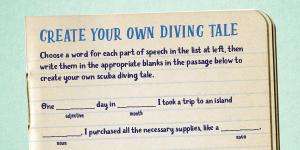 CREATE YOUR OWN DIVING TALE
Choose a word for each part of speech in the list at left, then
write them in the appropriate blanks in the passage below to
create your own scuba diving tale.
One ________ day in ________ I took a trip to an island
adjective month
________. I purchased all the necessary supplies, like a ________
noun noun